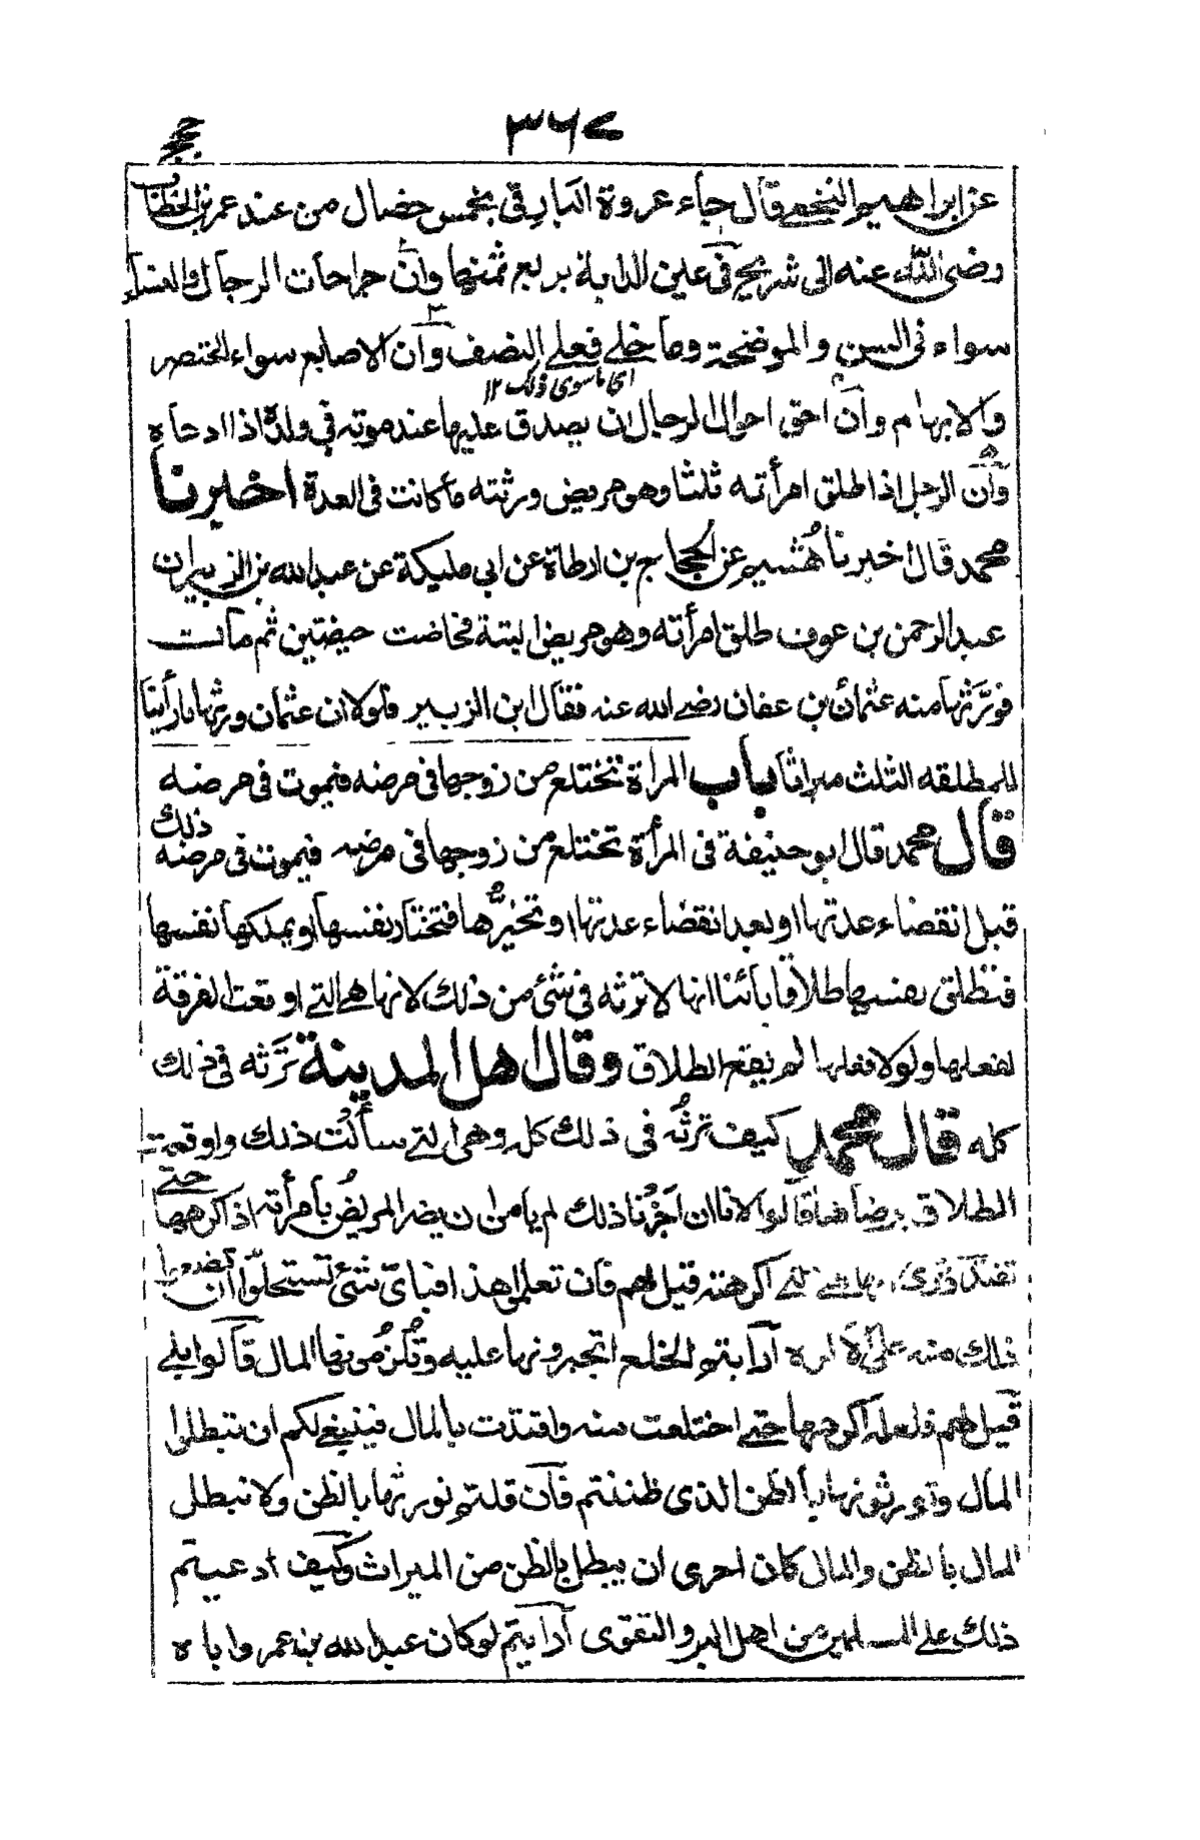 ٣٦٧
حجج
عن ابراهيم النخعي قال جاء عروة البارقي بخمس خصال من عند عمر بن الخطاب
رضي الله عنه الى شريح في عين الدابة بربع ثمنها وان جراحات الرجال والنساء
سواء في السن والموضحة وما خلى فعلى النصف وان الاصابع سواء الخنصر
اي ما سوى ذلك ١٢
والابهام وان احق احوال الرجال ان يصدق عليها عند موته في ولده اذا ادعاه
وان الرجل اذا طلق امرأته ثلثا وهو مريض ورثته ما كانت في العدة اخبرنا
محمد قال اخبرنا هُشيم عن الحجاج بن ارطاة عن ابي مليكة عن عبد الله بن الزبير ان
عبد الرحمن بن عوف طلق امرأته وهو مريض البتة فحاضت حيضتين ثم مات
فورَّثها منه عثمان بن عفان رضي الله عنه فقال ابن الزبير فلولا ان عثمان ورثها ما رأينا
للمطلقه الثلث ميراثا باب المراة تختلع من زوجها في مرضه فيموت في مرضه
قال محمد قال ابو حنيفة في المرأة تختلع من زوجها في مرضه فيموت في مرضه ذلك
قبل انقضاء عدتها او بعد انقضاء عدتها او تخيّرها فتختار نفسها او يملكها نفسها
فتطلق نفسها طلاقا بائنا انها لا ترثه في شئ من ذلك لانها هي التي اوقعت الفرقة
لفعلها ولولا فعلها لم يقع الطلاق وقال اهل المدينة ترثه في ذلك
كله قال محمد كيف ترثُه في ذلك كله وهي التي سألت ذلك واوقعت
الطلاق برضاها قالوا لانا ان اجزنا ذلك لم يامن ان يضر المريض بامرأته اذا كرهها حتى
تفتدي اكرهته قيل لهم فان تعلى هذا فباي شئ تستحلوا ان
ذلك منه على ارأيتم الخلع اتجيرونها عليه وتكن من فا المال قالوا بلى
قيل لهم فلعله اكرهها حتى اختلعت منه وافتدت بالمال فينبغي لكم ان تبطلوا
المال وتورثونها بالظن الذى ظننتم فان قلتم نورثها بالظن ولا نبطل
المال بالظن والمال كان احرى ان يبطل بالظن من الميراث وكيف ادعيتم
ذلك على المسلمين من اهل البر والتقوى ارايتم لو كان عبد الله بن عمر واباه